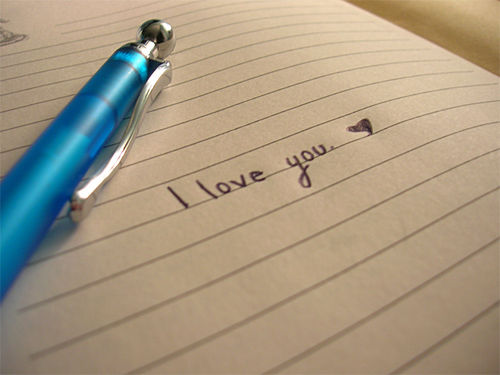 I love you. ♥